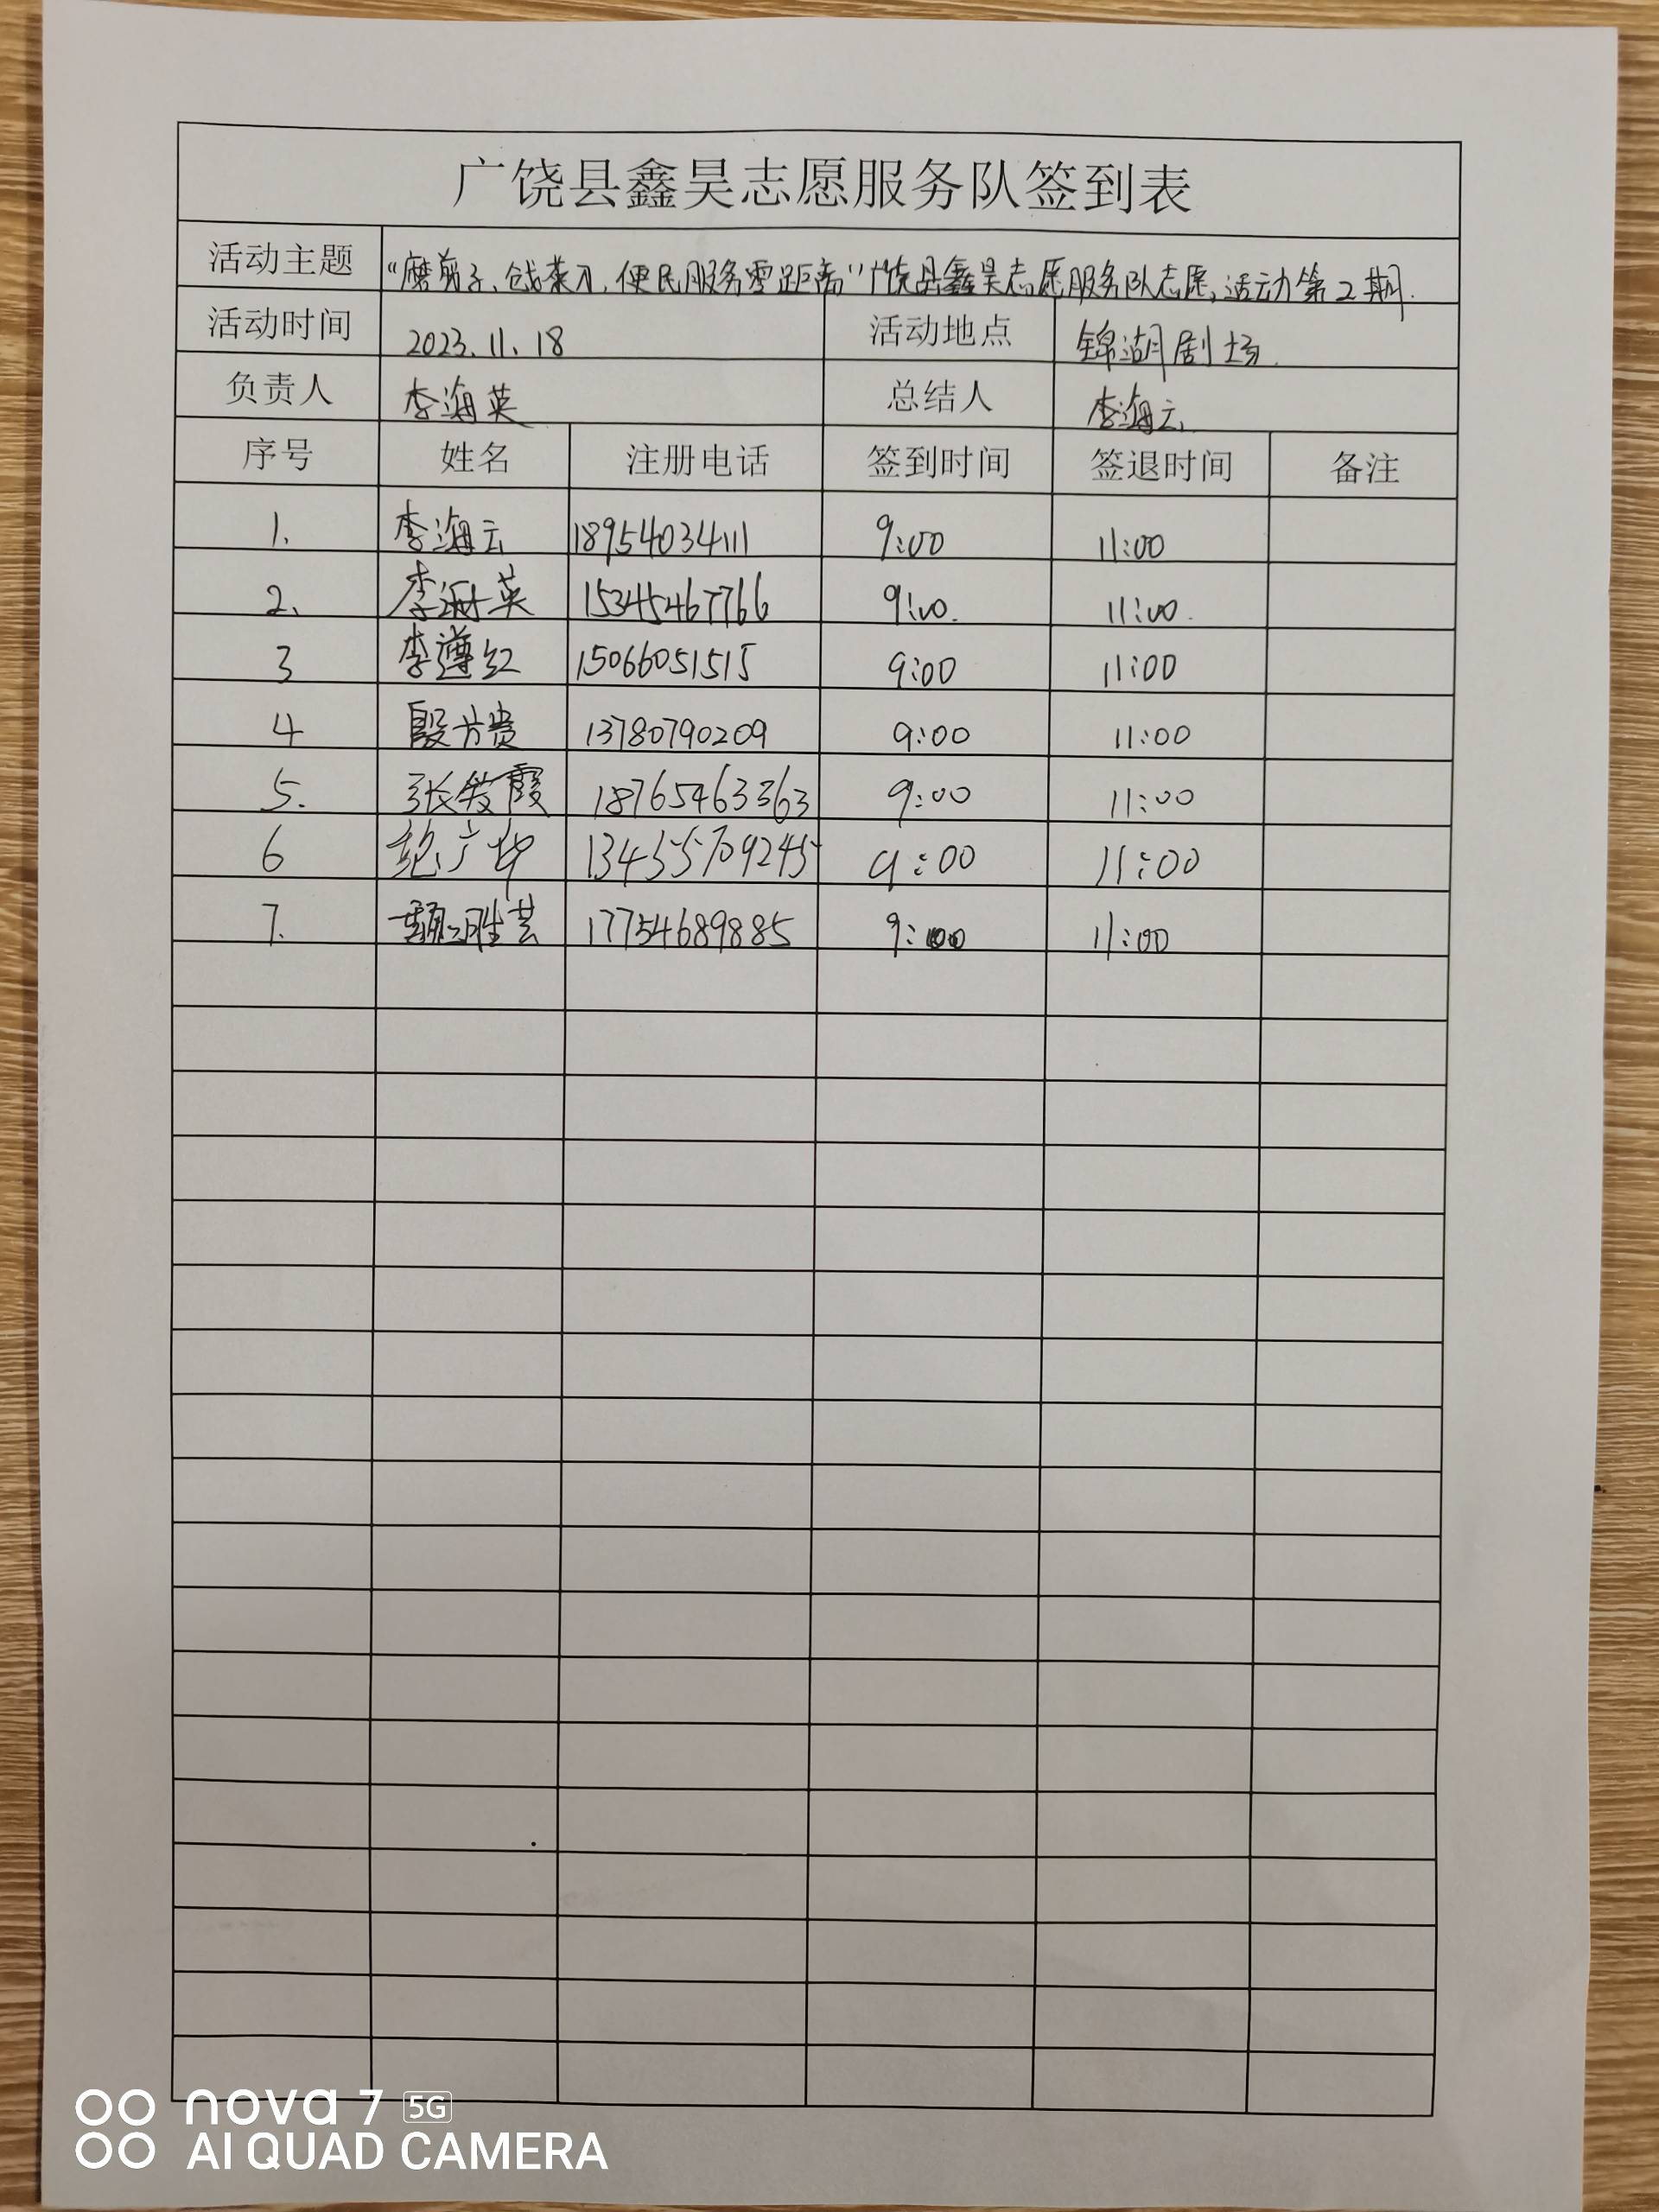 广饶县鑫昊志愿服务队签到表
活动主题 “磨剪子、戗菜刀,便民服务零距离”广饶县鑫昊志愿服务队志愿,活动第2期.
活动时间 2023.11.18 活动地点 锦湖剧场.
负责人 李海英 总结人 李海云
序号 姓名 注册电话 签到时间 签退时间 备注
1. 李海云 18954034111 9:00 11:00
2、 李海英 15345467766 9:00. 11:00.
3 李遵红 15066051515 9:00 11:00
4 殷方贵 13780790209 9:00 11:00
5. 张爱霞 18765463363 9:00 11:00
6 广 9:00 11:00
7. 胜芸 17754689885 9:00 11:00
nova 7 5G
AI QUAD CAMERA